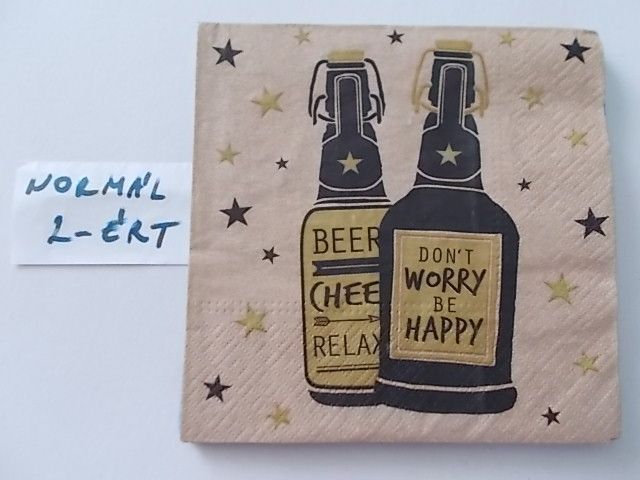 NORMÁL
2-ÉRT
BEER
CHEE
RELAX
DON'T
WORRY
BE
HAPPY